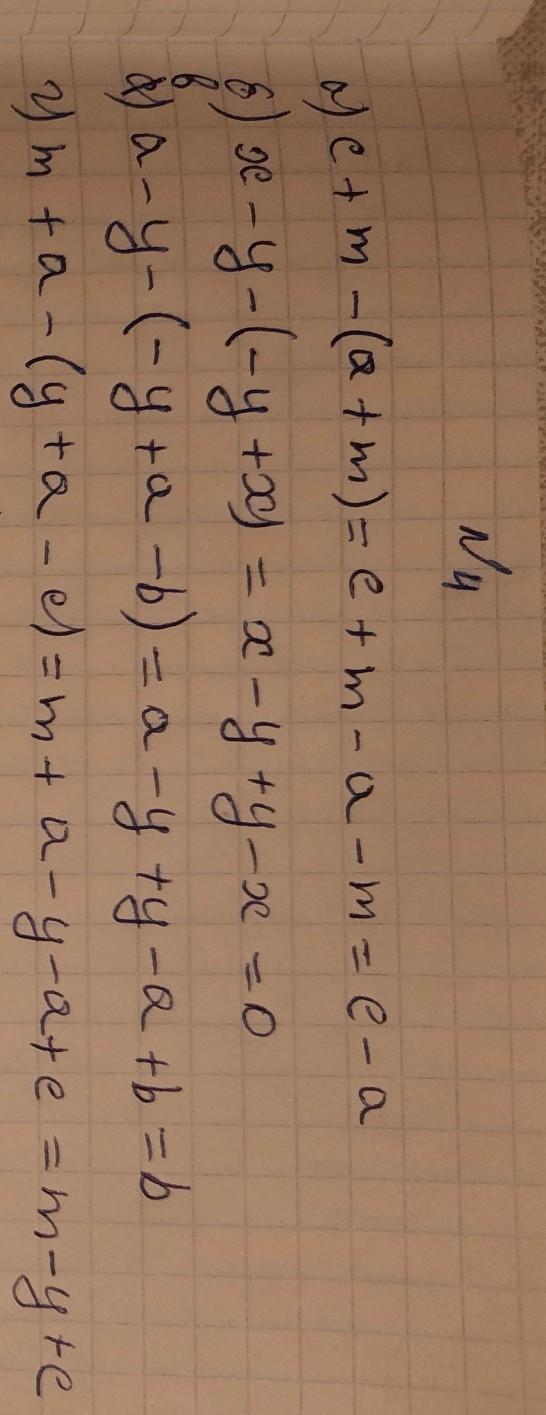 N4
а) c + m - (a + m) = c + m - a - m = c - a
б) x - y - (-y + x) = x - y + y - x = 0
в) a - y - (-y + a - b) = a - y + y - a + b = b
г) m + a - (y + a - c) = m + a - y - a + c = m - y + c